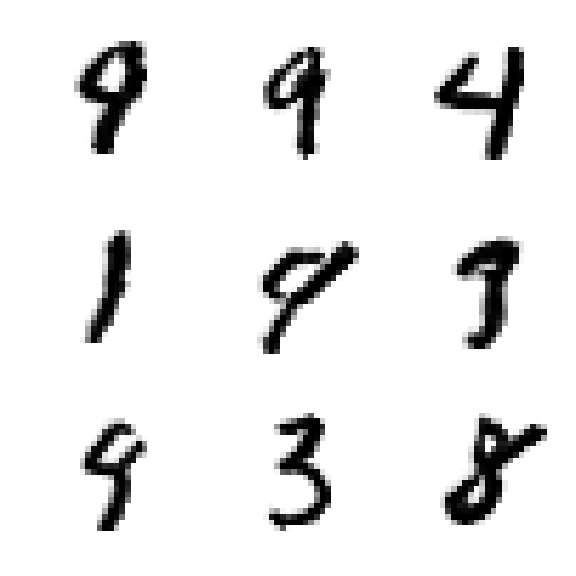 9 9 4
1 9 3
9 3 8